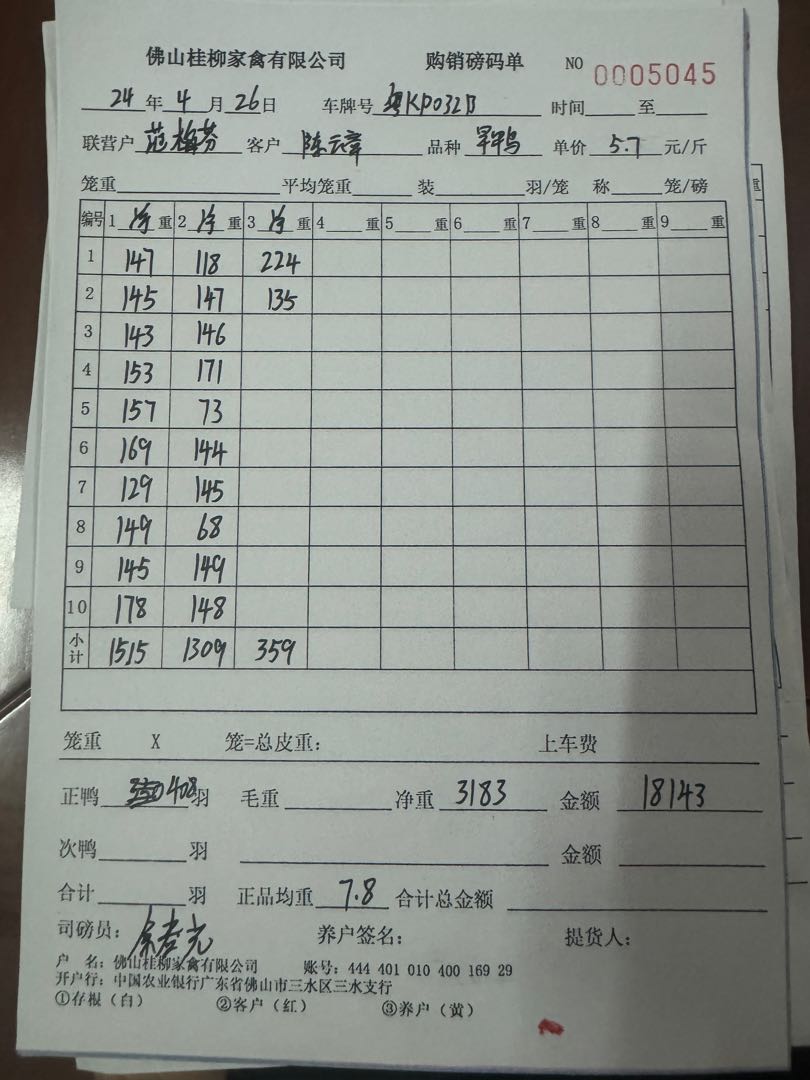 佛山桂柳家禽有限公司 购销磅码单 NO 0005045
24 年 4 月 26 日 车牌号 粤KP032B 时间 至
联营户 范梅芬 客户 陈云章 品种 旱鸭 单价 5.7 元/斤
笼重 平均笼重 装 羽/笼 称 笼/磅
编号 1 净 重 2 净 重 3 净 重 4 重 5 重 6 重 7 重 8 重 9 重
1 147 118 224
2 145 147 135
3 143 146
4 153 171
5 157 73
6 169 144
7 129 145
8 149 68
9 145 149
10 178 148
小计 1515 1309 359
笼重 X 笼=总皮重: 上车费
正鸭 408 羽 毛重 净重 3183 金额 18143
次鸭 羽 金额
合计 羽 正品均重 7.8 合计总金额
司磅员: 养户签名: 提货人:
户 名: 佛山桂柳家禽有限公司 账号: 444 401 010 400 169 29
开户行: 中国农业银行广东省佛山市三水区三水支行
①存根(白) ②客户(红) ③养户(黄)